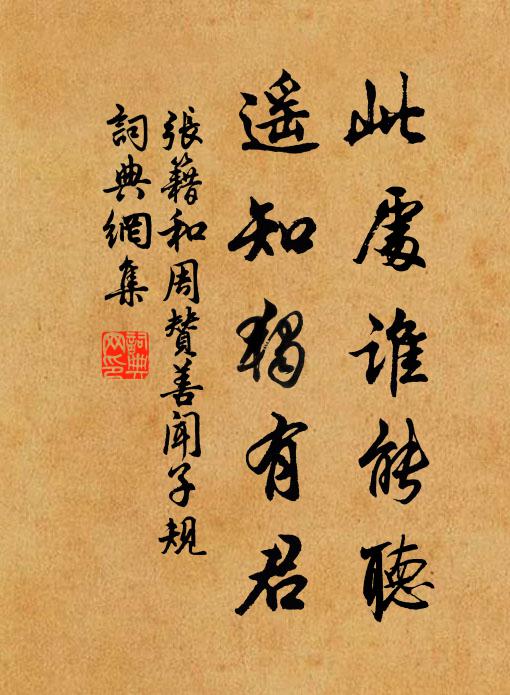 此處誰能聽
遥知獨有君
張籍和周贊善聞子規
詞典網集
詞典
网印